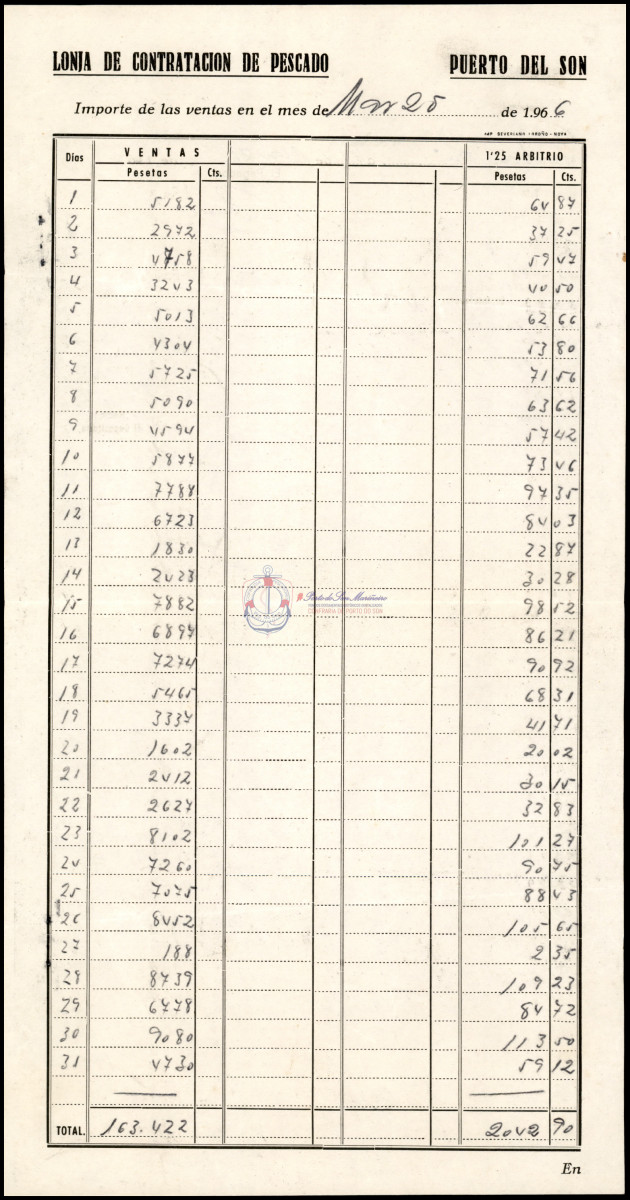 LONJA DE CONTRATACION DE PESCADO PUERTO DEL SON
Importe de las ventas en el mes de Marzo de 1.966
Días VENTAS 1'25 ARBITRIO
Pesetas Cts. Pesetas Cts.
1 5182 64 87
2 2972 37 25
3 4758 59 47
4 3243 40 50
5 5013 62 66
6 4304 53 80
7 5725 71 56
8 5090 63 62
9 4594 57 42
10 5877 73 46
11 7788 97 35
12 6723 84 03
13 1830 22 87
14 2423 30 28
15 7882 98 52
16 6897 86 21
17 7274 90 92
18 5465 68 31
19 3337 41 71
20 1602 20 02
21 2412 30 15
22 2627 32 83
23 8102 101 27
24 7260 90 75
25 7075 88 43
26 8452 105 65
27 188 2 35
28 8739 109 23
29 6778 84 72
30 9080 113 50
31 4730 59 12
TOTAL. 163.422 2042 90
En
Porto do Son Mariñeiro
CONFRARÍA DE PORTO DO SON